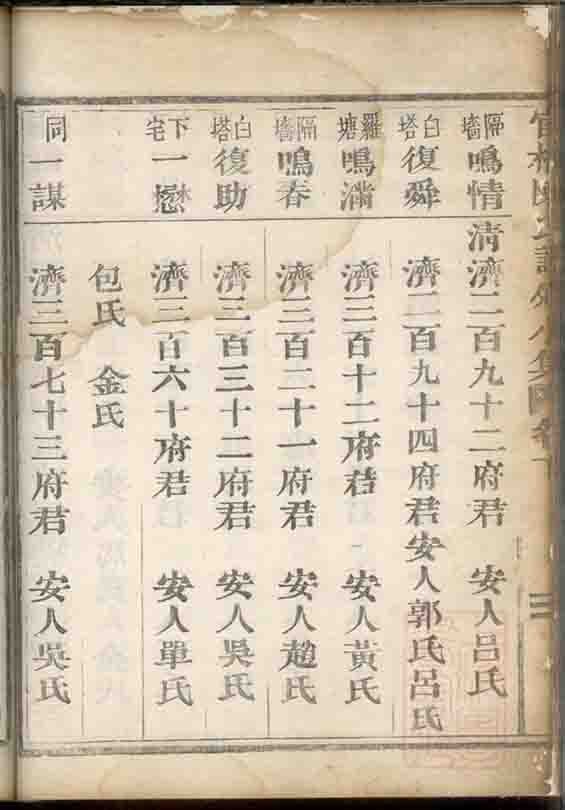 隔墻鳴情 清濟二百九十二府君 安人呂氏
白塔復舜 濟二百九十四府君安人郭氏呂氏
羅塘鳴 濟三百十二府君 安人黃氏
隔墻鳴春 濟三百二十一府君 安人趙氏
白塔復助 濟三百三十二府君 安人吳氏
下宅一懋 濟三百六十府君 安人單氏
包氏 金氏
同一謀 濟三百七十三府君 安人吳氏